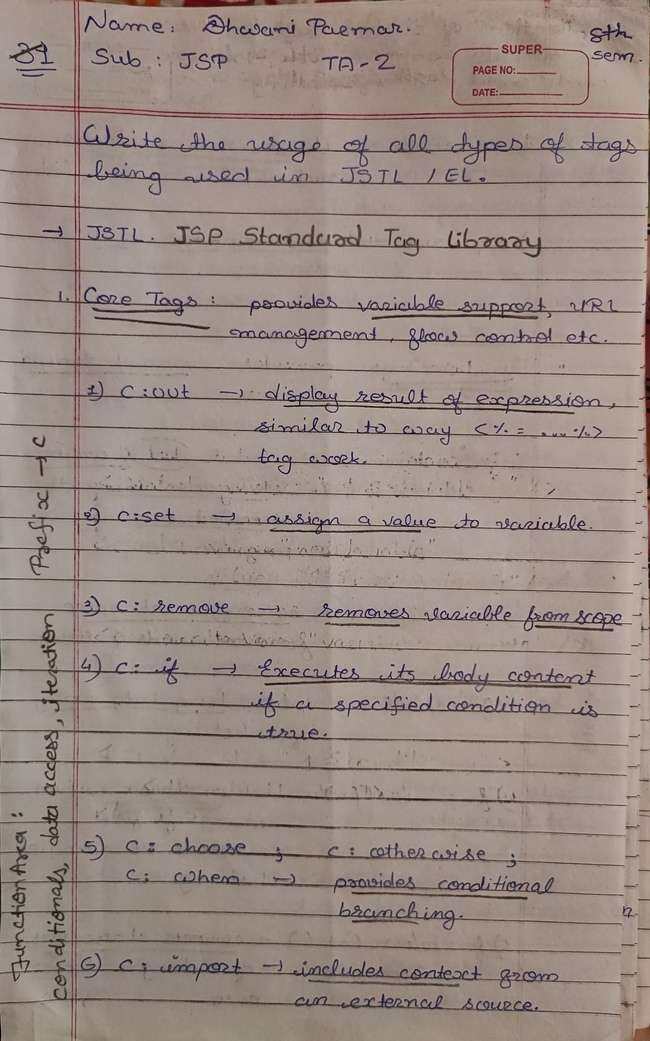 31
Name: Dhwani Parmar.
8th sem.
Sub: JSP TA-2
SUPER
PAGE NO:
DATE:
Write the usage of all types of tags
being used in JSTL / EL.
→ JSTL. JSP Standard Tag Library
1. Core Tags: provides variable support, URL
management, flow control etc.
1) c:out → display result of expression,
similar to way <%= ...%>
tag work.
2) c:set → assign a value to variable.
3) c: remove → removes variable from scope
4) c: if → Executes its body content
if a specified condition is
true.
5) c: choose ; c: otherwise ;
c: when → provides conditional
branching.
6) c: import → includes context from
an external source.
Function Area:
conditionals, data access, iteration Prefix → c